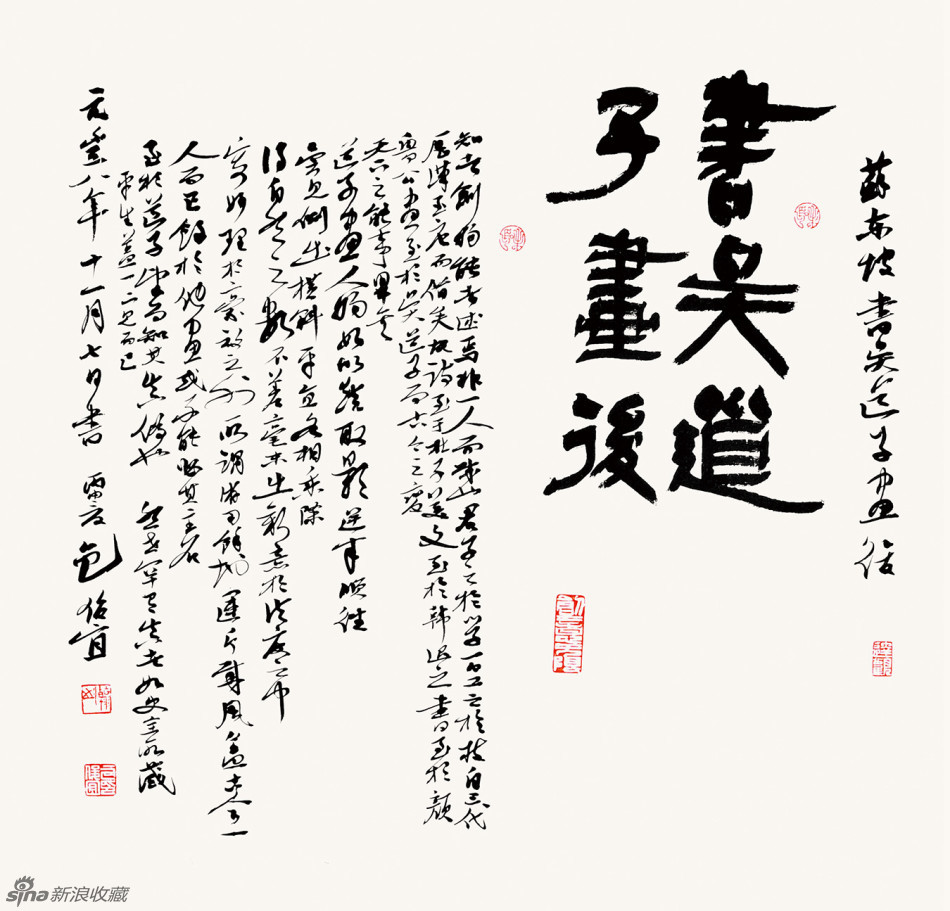 蘇東坡書吳道子畫後
書吳道
子畫後
知者創物能者述焉非一人而成也君子之於學百工之於技自三代
歷漢至唐而備矣故詩至於杜子美文至於韓退之書至於顏
魯公畫至於吳道子而古今之變
天下之能事畢矣
道子畫人物如以燈取影逆來順往
旁見側出橫斜平直各相乘除
得自然之數不差毫末出新意於法度之中
寄妙理於豪放之外所謂游刃餘地運斤成風蓋古今一
人而已餘於他畫或不能必其主名
至於道子望而知其真偽也 然世罕有真者如史全藏
平生蓋一二見而已
元豐八年十一月七日書 包俊宜
sina新浪收藏